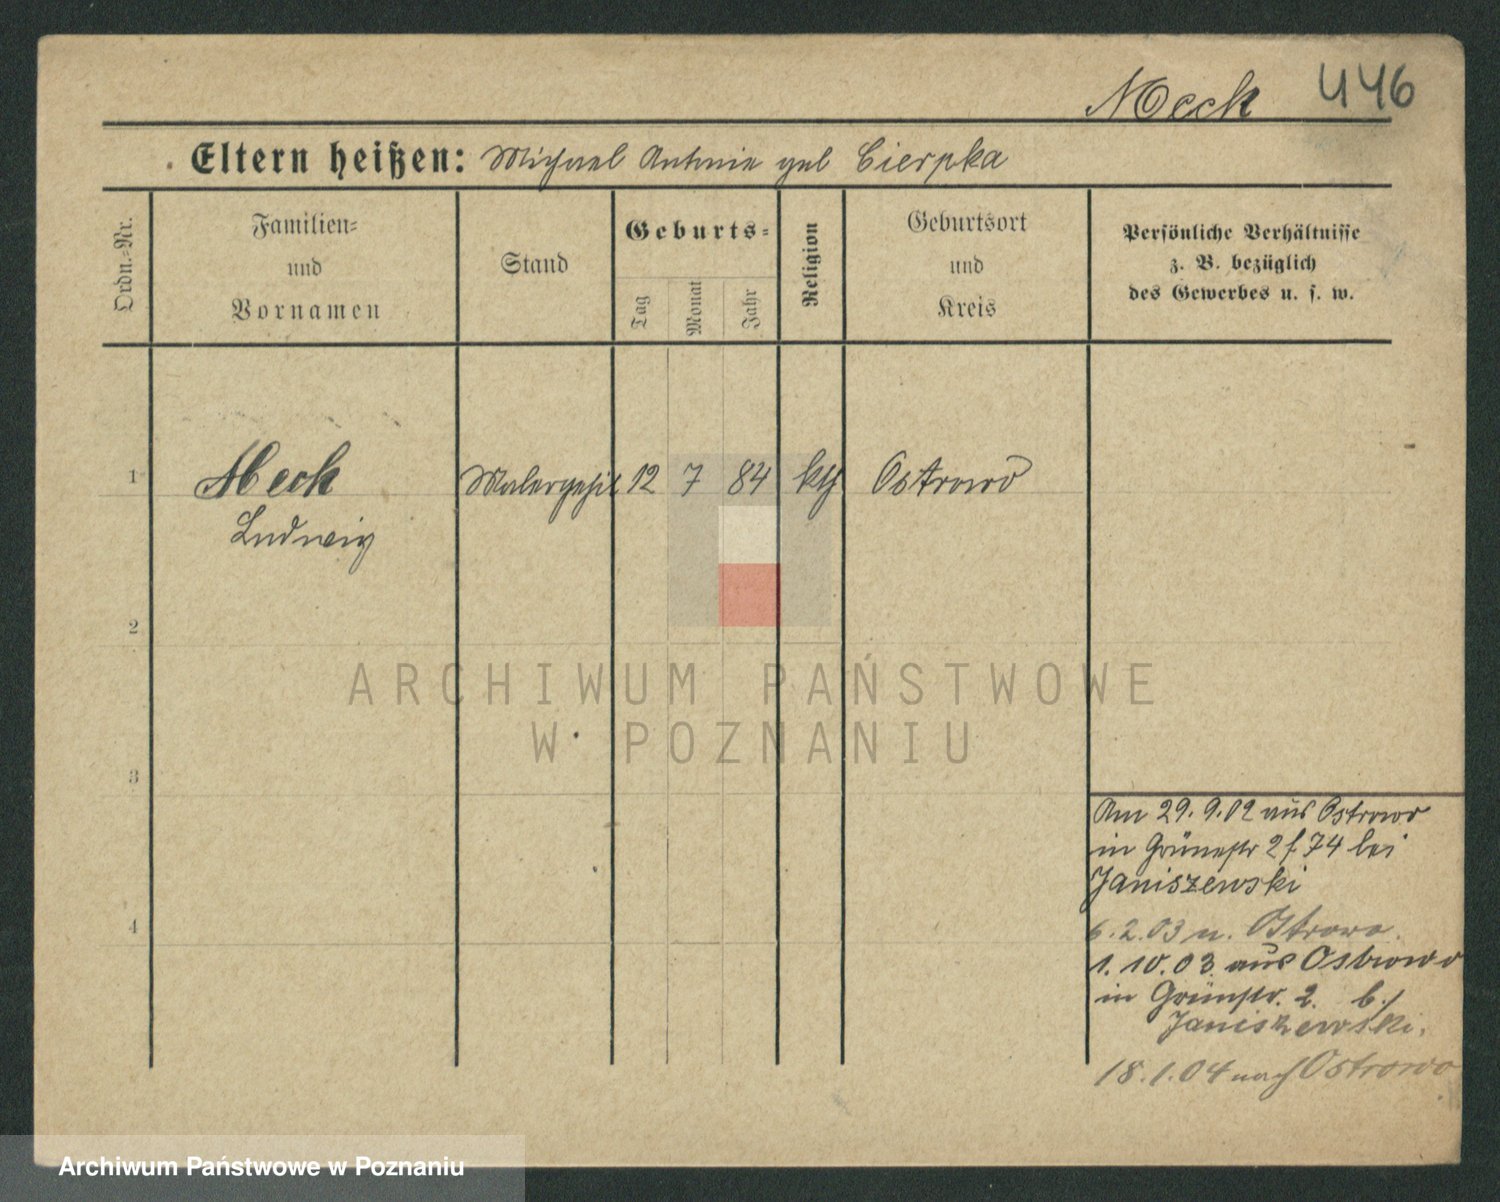 Meck 446
Eltern heißen: Michael Antonie geb Cierpka
Ordn.-Nr.
Familien-
und
Vornamen
Stand
Geburts-
Tag
Monat
Jahr
Religion
Geburtsort
und
Kreis
Persönliche Verhältnisse
z. B. bezüglich
des Gewerbes u. s. w.
1 Meck Malergehil 12 7 84 kth Ostrowo
Ludwig
2
ARCHIWUM PAŃSTWOWE
W POZNANIU
3
Am 29. 9. 02 aus Ostrowo
in Grünestr 2 f. 74 bei
Janiszewski
4
6. 2. 03 n. Ostrowo.
1. 10. 03. aus Ostrowo
in Grünstr. 2. b/
Janiszewski.
18. 1. 04 nach Ostrowo
Archiwum Państwowe w Poznaniu